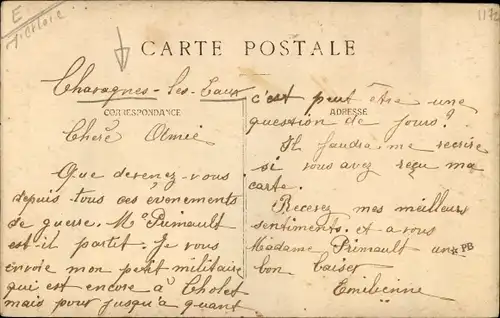 E
1172
CARTE POSTALE
Chavagnes-les-Eaux
CORRESPONDANCE
Chère Olmie
Que devenez-vous
depuis tous ces évenements
de guerre. Mr Primault
est-il partit. Je vous
envoie mon petit militaire
qui est encore à Cholet
mais pour jusqu'a quant
c'est peut être une
ADRESSE
question de jours?
Il faudra me recrire
si vous avez reçu ma
carte.
Recevez mes meilleurs
sentiments. et a vous
Madame Primault un
bon baiser
Emilienne
PB